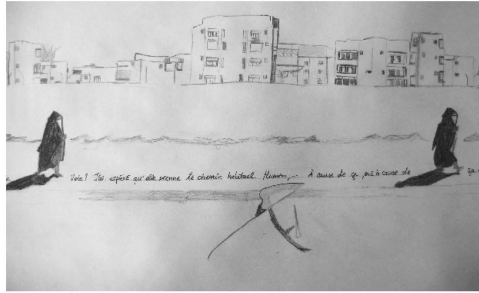 Voie! J'ai espéré qu'elle prenne le chemin habituel. Humm,... À cause de ça, puis à cause de ça